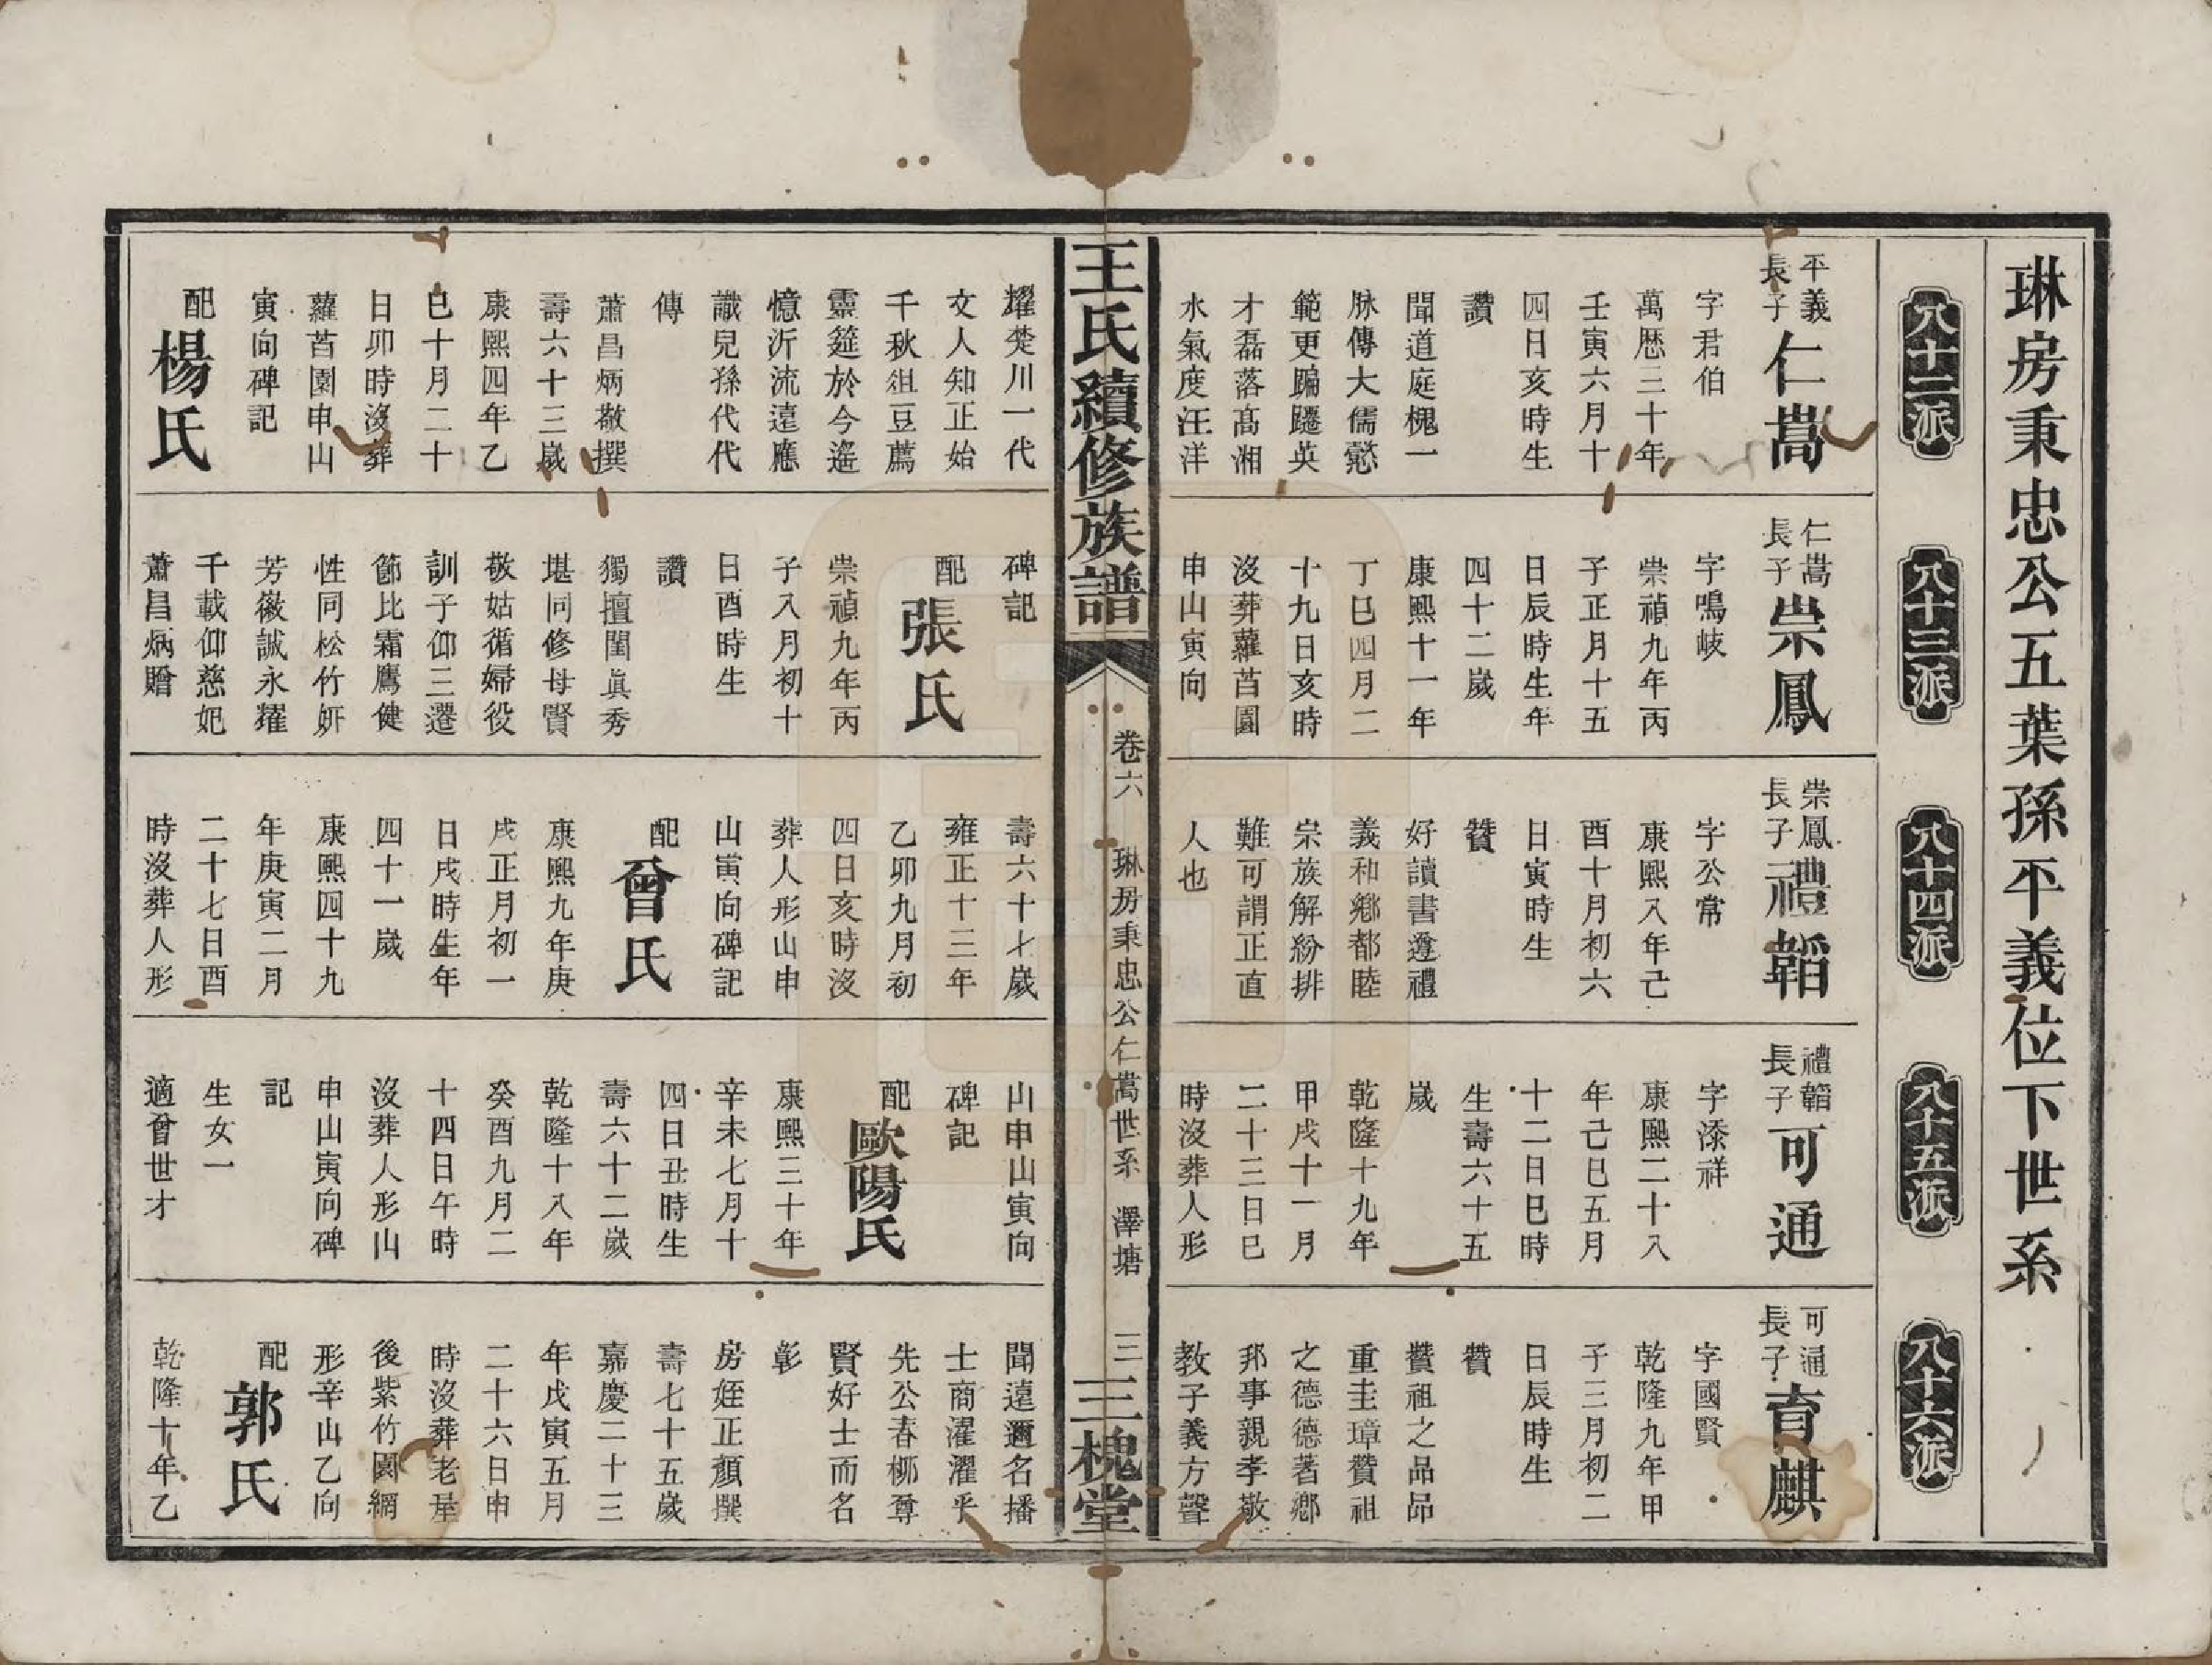 琳房秉忠公五葉孫平義位下世系
八十二派
八十三派
八十四派
八十五派
八十六派
平義
長子
仁嵩
字君伯
萬歴三十年
壬寅六月十
四日亥時生
讚
聞道庭槐一
脉傳大儒懿
範更蹁躚英
才磊落高湘
水氣度汪洋
仁嵩
長子
崇鳳
字鳴岐
崇禎九年丙
子正月十五
日辰時生年
四十二歲
康熙十一年
丁巳四月二
十九日亥時
沒葬蘿苩園
申山寅向
崇鳳
長子
禮韜
字公常
康熙八年己
酉十月初六
日寅時生
贊
好讀書遵禮
義和鄉都睦
宗族解紛排
難可謂正直
人也
禮韜
長子
可通
字漆祥
康熙二十八
年己巳五月
十二日巳時
生壽六十五
歲
乾隆十九年
甲戌十一月
二十三日巳
時沒葬人形
可通
長子
育麒
字國賢
乾隆九年甲
子三月初二
日辰時生
贊
贊祖之品品
重圭璋贊祖
之德德著鄉
邦事親孝敬
教子義方聲
王氏續修族譜
卷六
琳房秉忠公仁嵩世系
澤塘
三
三槐堂
耀焚川一代
文人知正始
千秋俎豆薦
靈筵於今遙
憶沂流遠應
識兒孫代代
傳
蕭昌炳敬撰
壽六十三歲
康熙四年乙
巳十月二十
日卯時沒葬
蘿苩園申山
寅向碑記
配
楊氏
碑記
配
張氏
崇禎九年丙
子入月初十
日酉時生
讚
獨擅閨眞秀
堪同修母賢
敬姑循婦役
訓子仰三遷
節比霜鷹健
性同松竹妍
芳徽誠永耀
千載仰慈妃
蕭昌炳贈
壽六十七歲
雍正十三年
乙卯九月初
四日亥時沒
葬人形山申
山寅向碑記
配
曾氏
康熙九年庚
戌正月初一
日戌時生年
四十一歲
康熙四十九
年庚寅二月
二十七日酉
時沒葬人形
山申山寅向
碑記
配
歐陽氏
康熙三十年
辛未七月十
四日丑時生
壽六十二歲
乾隆十八年
癸酉九月二
十四日午時
沒葬人形山
申山寅向碑
記
生女一
適曾世才
聞遠邇名播
士商濯濯乎
先公春柳尊
賢好士而名
彰
房姪正顏撰
壽七十五歲
嘉慶二十三
年戊寅五月
二十六日申
時沒葬老屋
後紫竹園網
形辛山乙向
配
郭氏
乾隆十年乙